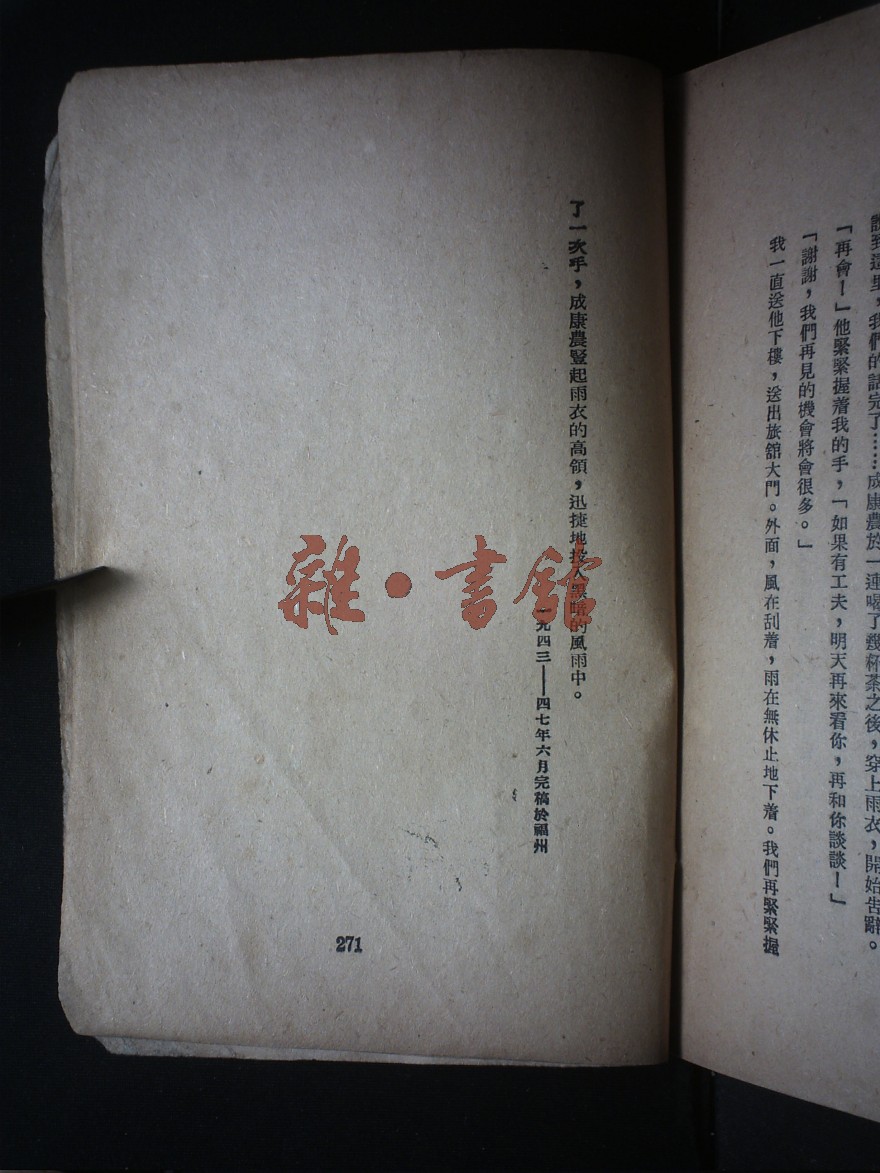 說到這里,我們的話完了……成康農於一連喝了幾杯茶之後,穿上雨衣,開始告辭。
「再會!」他緊緊握着我的手,「如果有工夫,明天再來看你,再和你談談!」
「謝謝,我們再見的機會將會很多。」
我一直送他下樓,送出旅舘大門。外面,風在刮着,雨在無休止地下着。我們再緊緊握
了一次手,成康農豎起雨衣的高領,迅捷地投入黑暗的風雨中。
一九四三——四七年六月完稿於福州
271
雜·書館